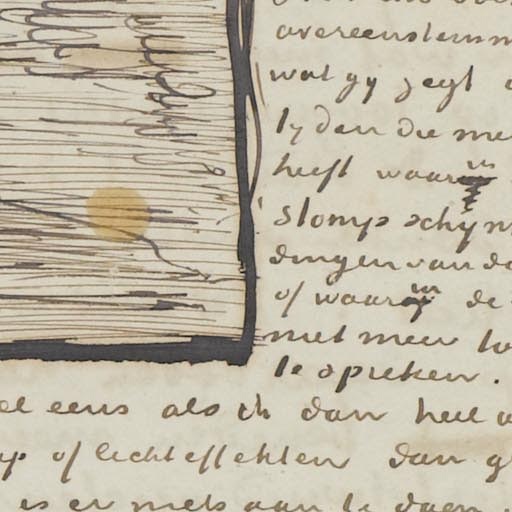 overeenstem
wat gy zegt
lyden die me
heeft waarin
stomp schijn
dingen van da
of waarin de
niet meer to
te spreken.
el eens als ik dan heel
op of lichteffekten dan g
is er niets aan te doen.